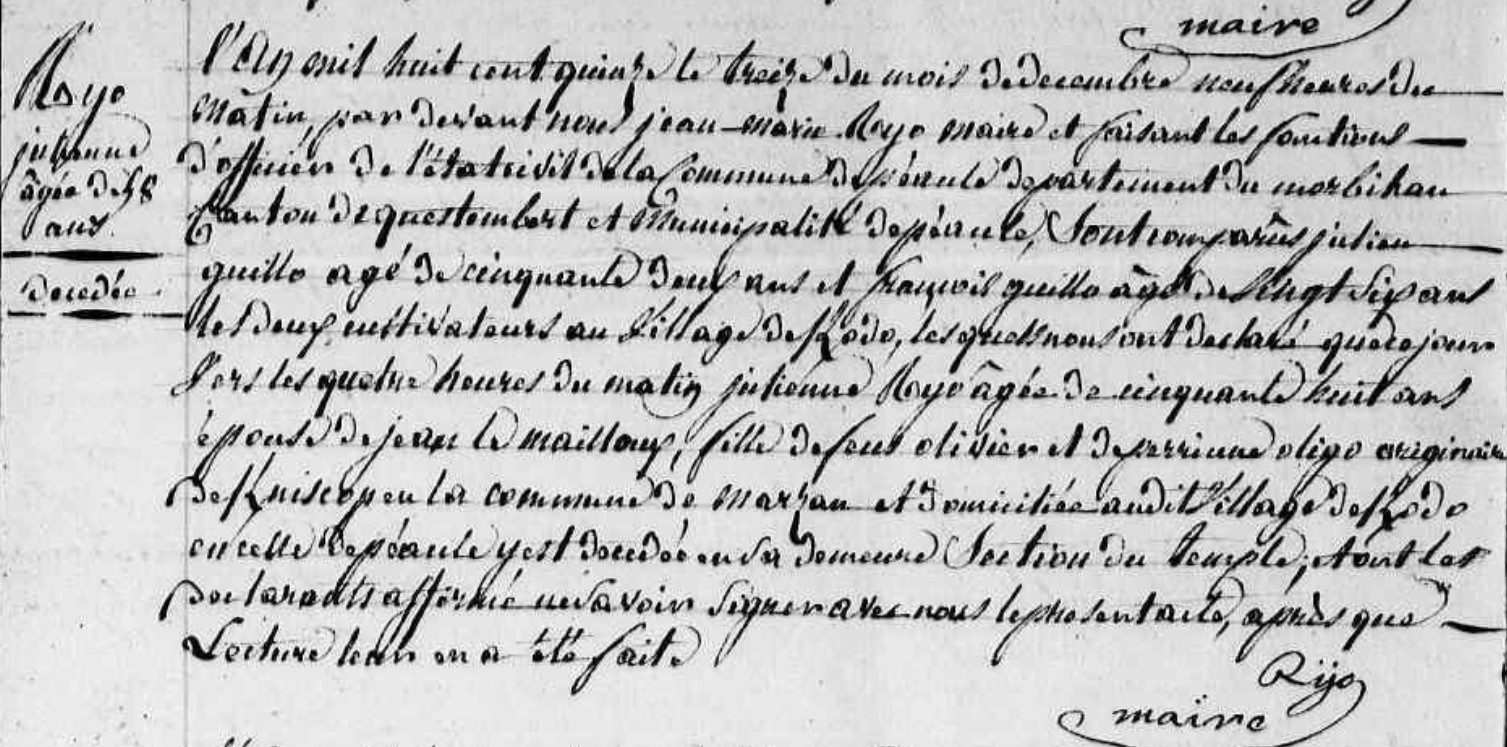 maire
Ryo
julienne
âgée de 58
ans.
decedée
l'an mil huit cent quinze le treize du mois de decembre neuf heures du
matin, par devant nous jean-marie Ryo maire et faisant les fonctions
d'officier de l'état civil de la Commune de péaule departement du morbihan
Canton de questembert et Municipalité de péaule, Sont comparûs julien
guillo agé de cinquante deux ans et françois guillo âgé de Vingt Six ans
les deux cultivateurs au Village de Kodo, les quels nous ont declaré que ce jour
Vers les quatre heures du matin julienne Ryo âgée de cinquante huit ans
épouse de jean le mailloux, fille de feus olivier et de perrinne oligo originaire
de Kniscop en la commune de marzan et domiciliée audit Village de Kodo
en celle de péaule y est decedée en sa demeure Section du temple; et ont les
declarants affirmé ne savoir signer avec nous le present acte, après que
Lecture leur en a été faite
Rijo
maire